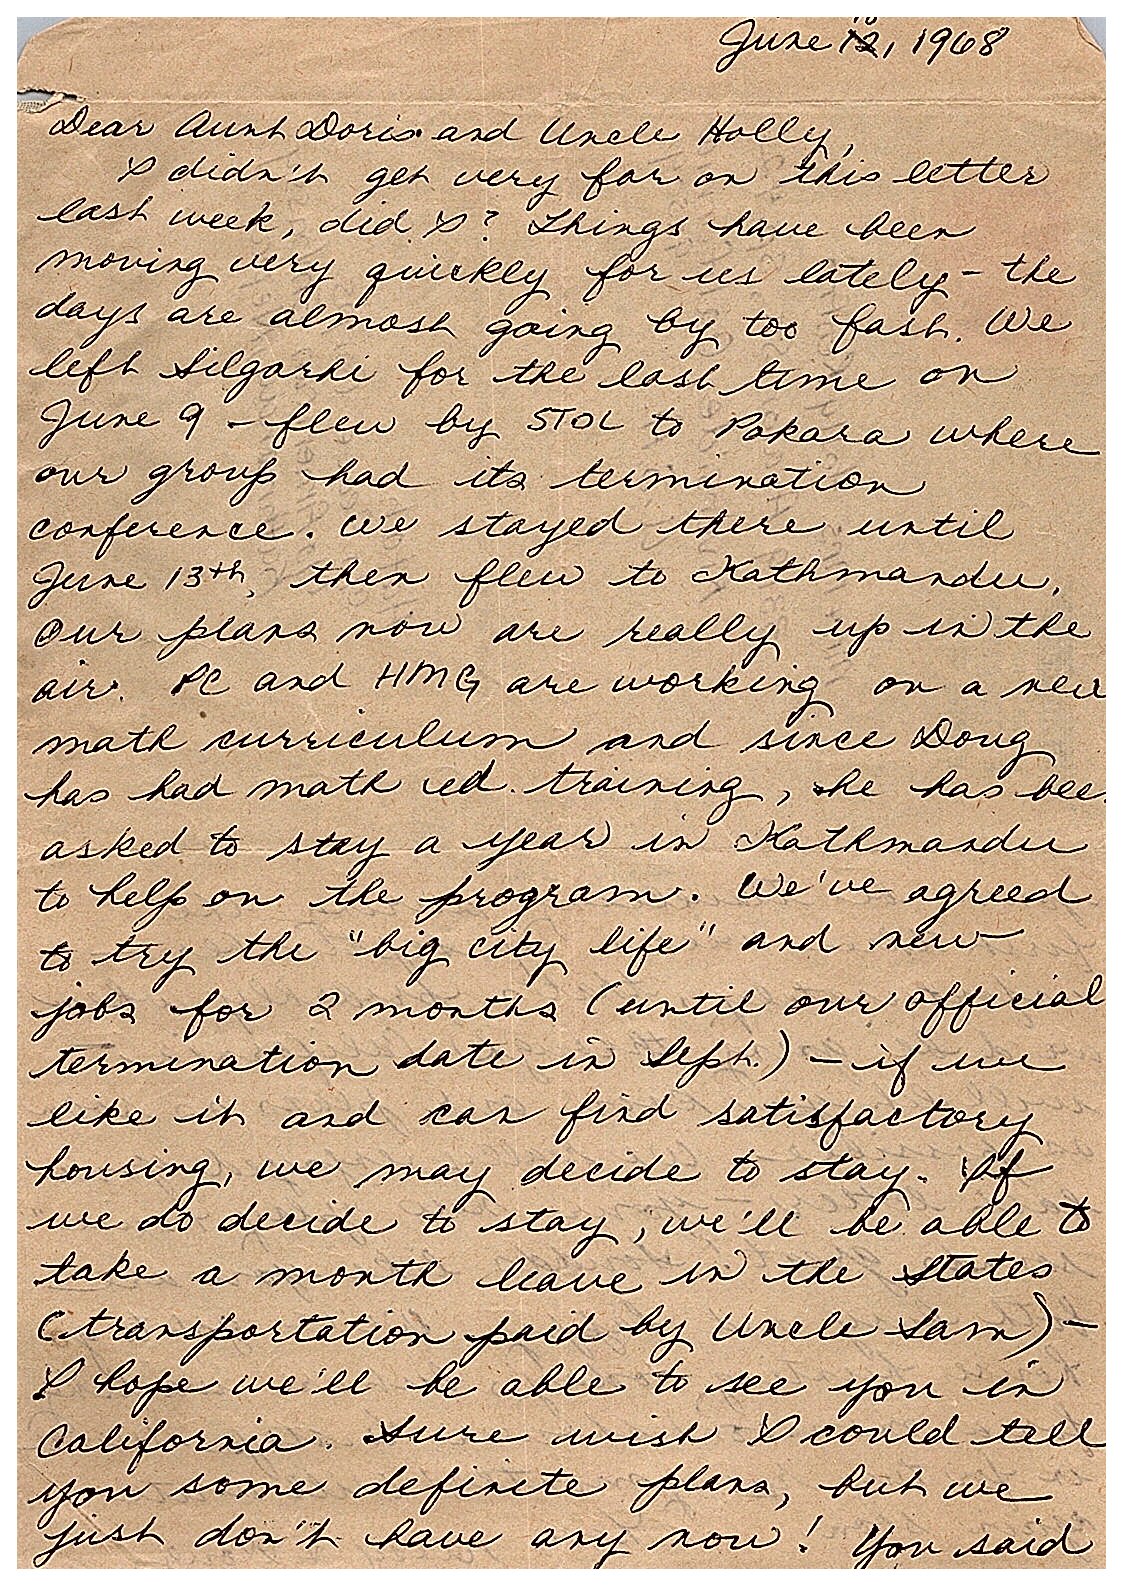 June 12, 1968
Dear Aunt Doris and Uncle Holly,
I didn't get very far on this letter
last week, did I? Things have been
moving very quickly for us lately – the
days are almost going by too fast. We
left Silgarhi for the last time on
June 9 – flew by STOL to Pokara where
our group had its termination
conference. We stayed there until
June 13th, then flew to Kathmandu.
Our plans now are really up in the
air. PC and HMG are working on a new
math curriculum and since Doug
has had math ed. training, he has bee
asked to stay a year in Kathmandu
to help on the program. We've agreed
to try the "big city life" and new
jobs for 2 months (until our official
termination date in Sept.) – if we
like it and can find satisfactory
housing, we may decide to stay. If
we do decide to stay, we'll be able to
take a month leave in the States
(transportation paid by Uncle Sam) –
I hope we'll be able to see you in
California. Sure wish I could tell
you some definite plans, but we
just don't have any now! You said